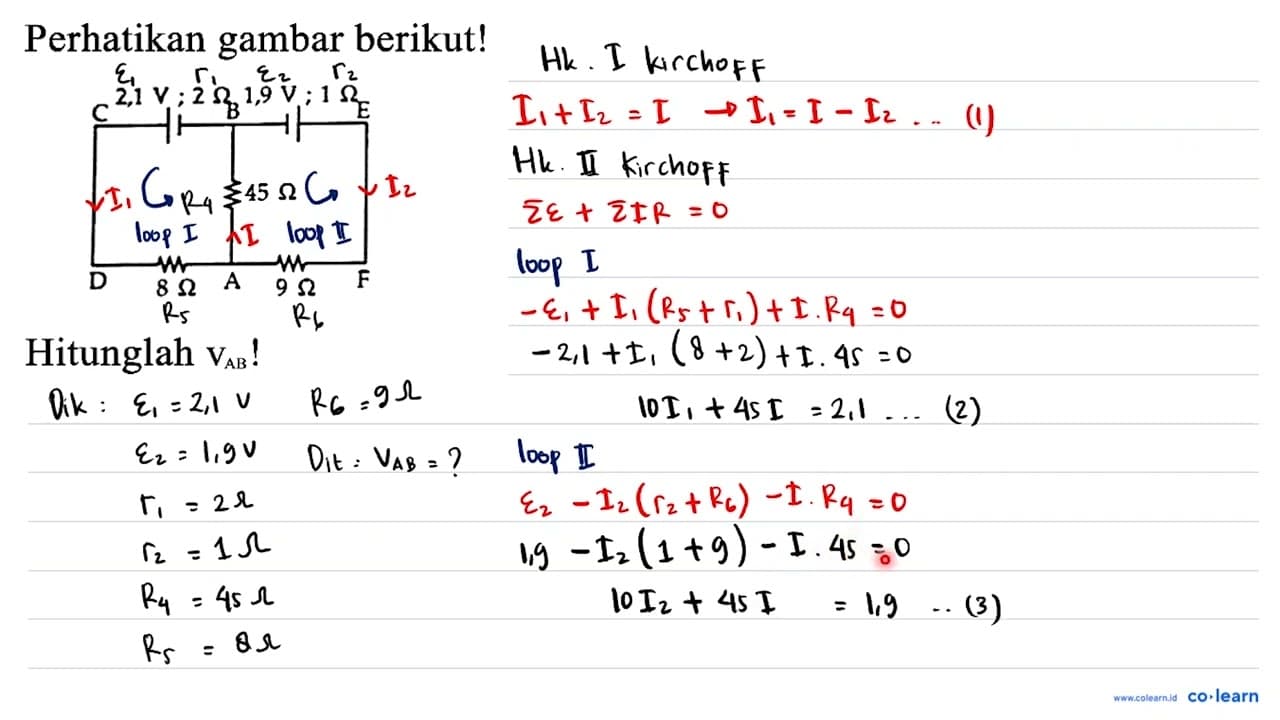 Perhatikan gambar berikut!
ε₁ r₁ ε₂ r₂
2,1 V ; 2 Ω 1,9 V ; 1 Ω
C B E
I₁ R4 45 Ω I₂
loop I I loop II
D 8 Ω A 9 Ω F
R5 R6
Hitunglah V_AB!
Dik : ε₁ = 2,1 V R6 = 9 Ω
ε₂ = 1,9 V Dit : V_AB = ?
r₁ = 2 Ω
r₂ = 1 Ω
R4 = 45 Ω
R5 = 8 Ω
Hk. I kirchoFF
I₁ + I₂ = I → I₁ = I - I₂ .. (1)
Hk. II KirchoFF
Σε + ΣIR = 0
loop I
-ε₁ + I₁ (R5 + r₁) + I . R4 = 0
-2,1 + I₁ (8 + 2) + I . 45 = 0
10 I₁ + 45 I = 2,1 ... (2)
loop II
ε₂ - I₂ (r₂ + R6) - I . R4 = 0
1,9 - I₂ (1 + 9) - I . 45 = 0
10 I₂ + 45 I = 1,9 .. (3)
www.colearn.id co·learn